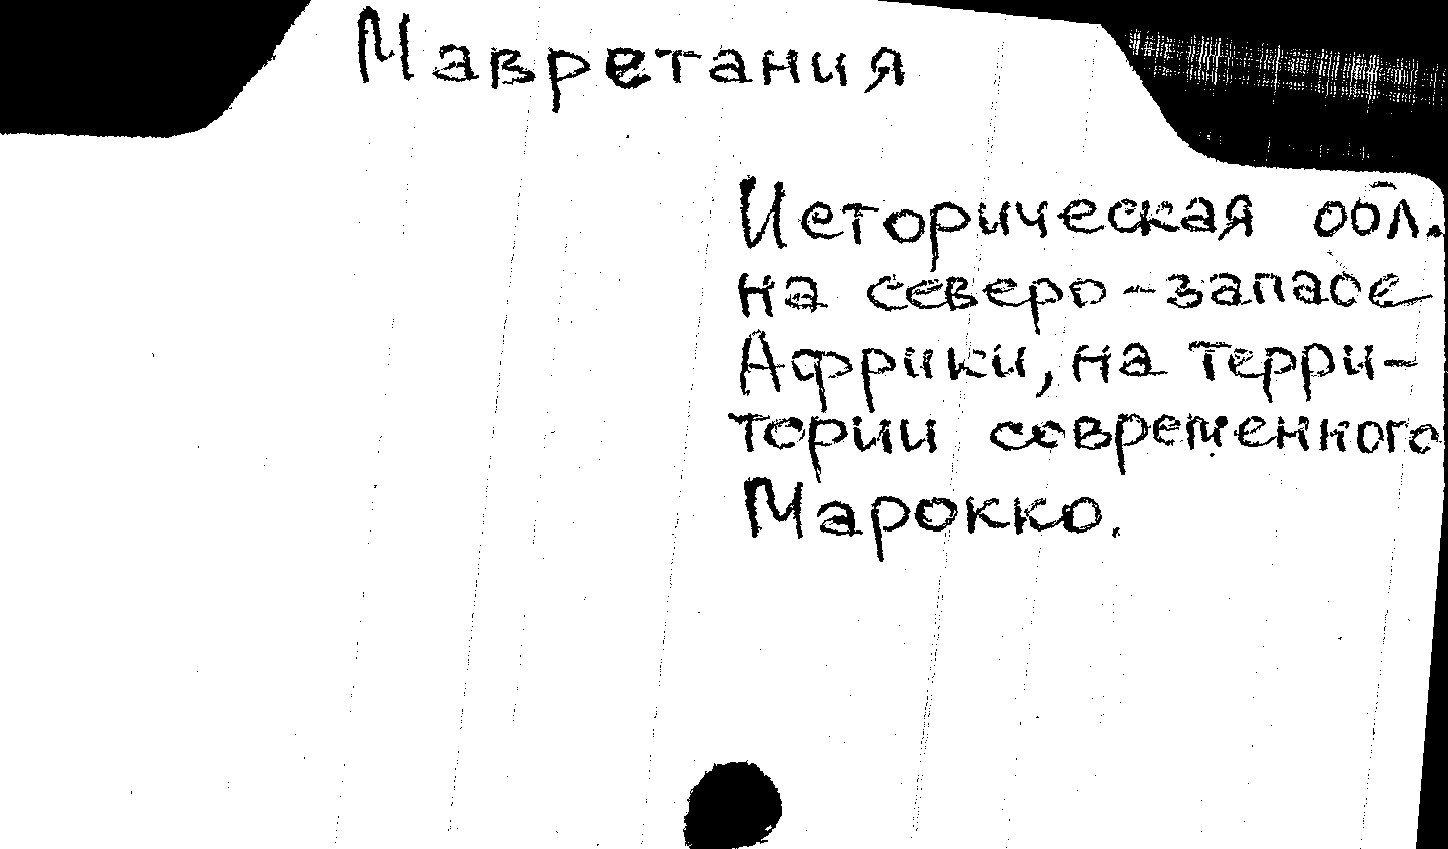 Мавретания
Историческая обл.
на северо-западе
Африки, на терри-
тории современного
Марокко.